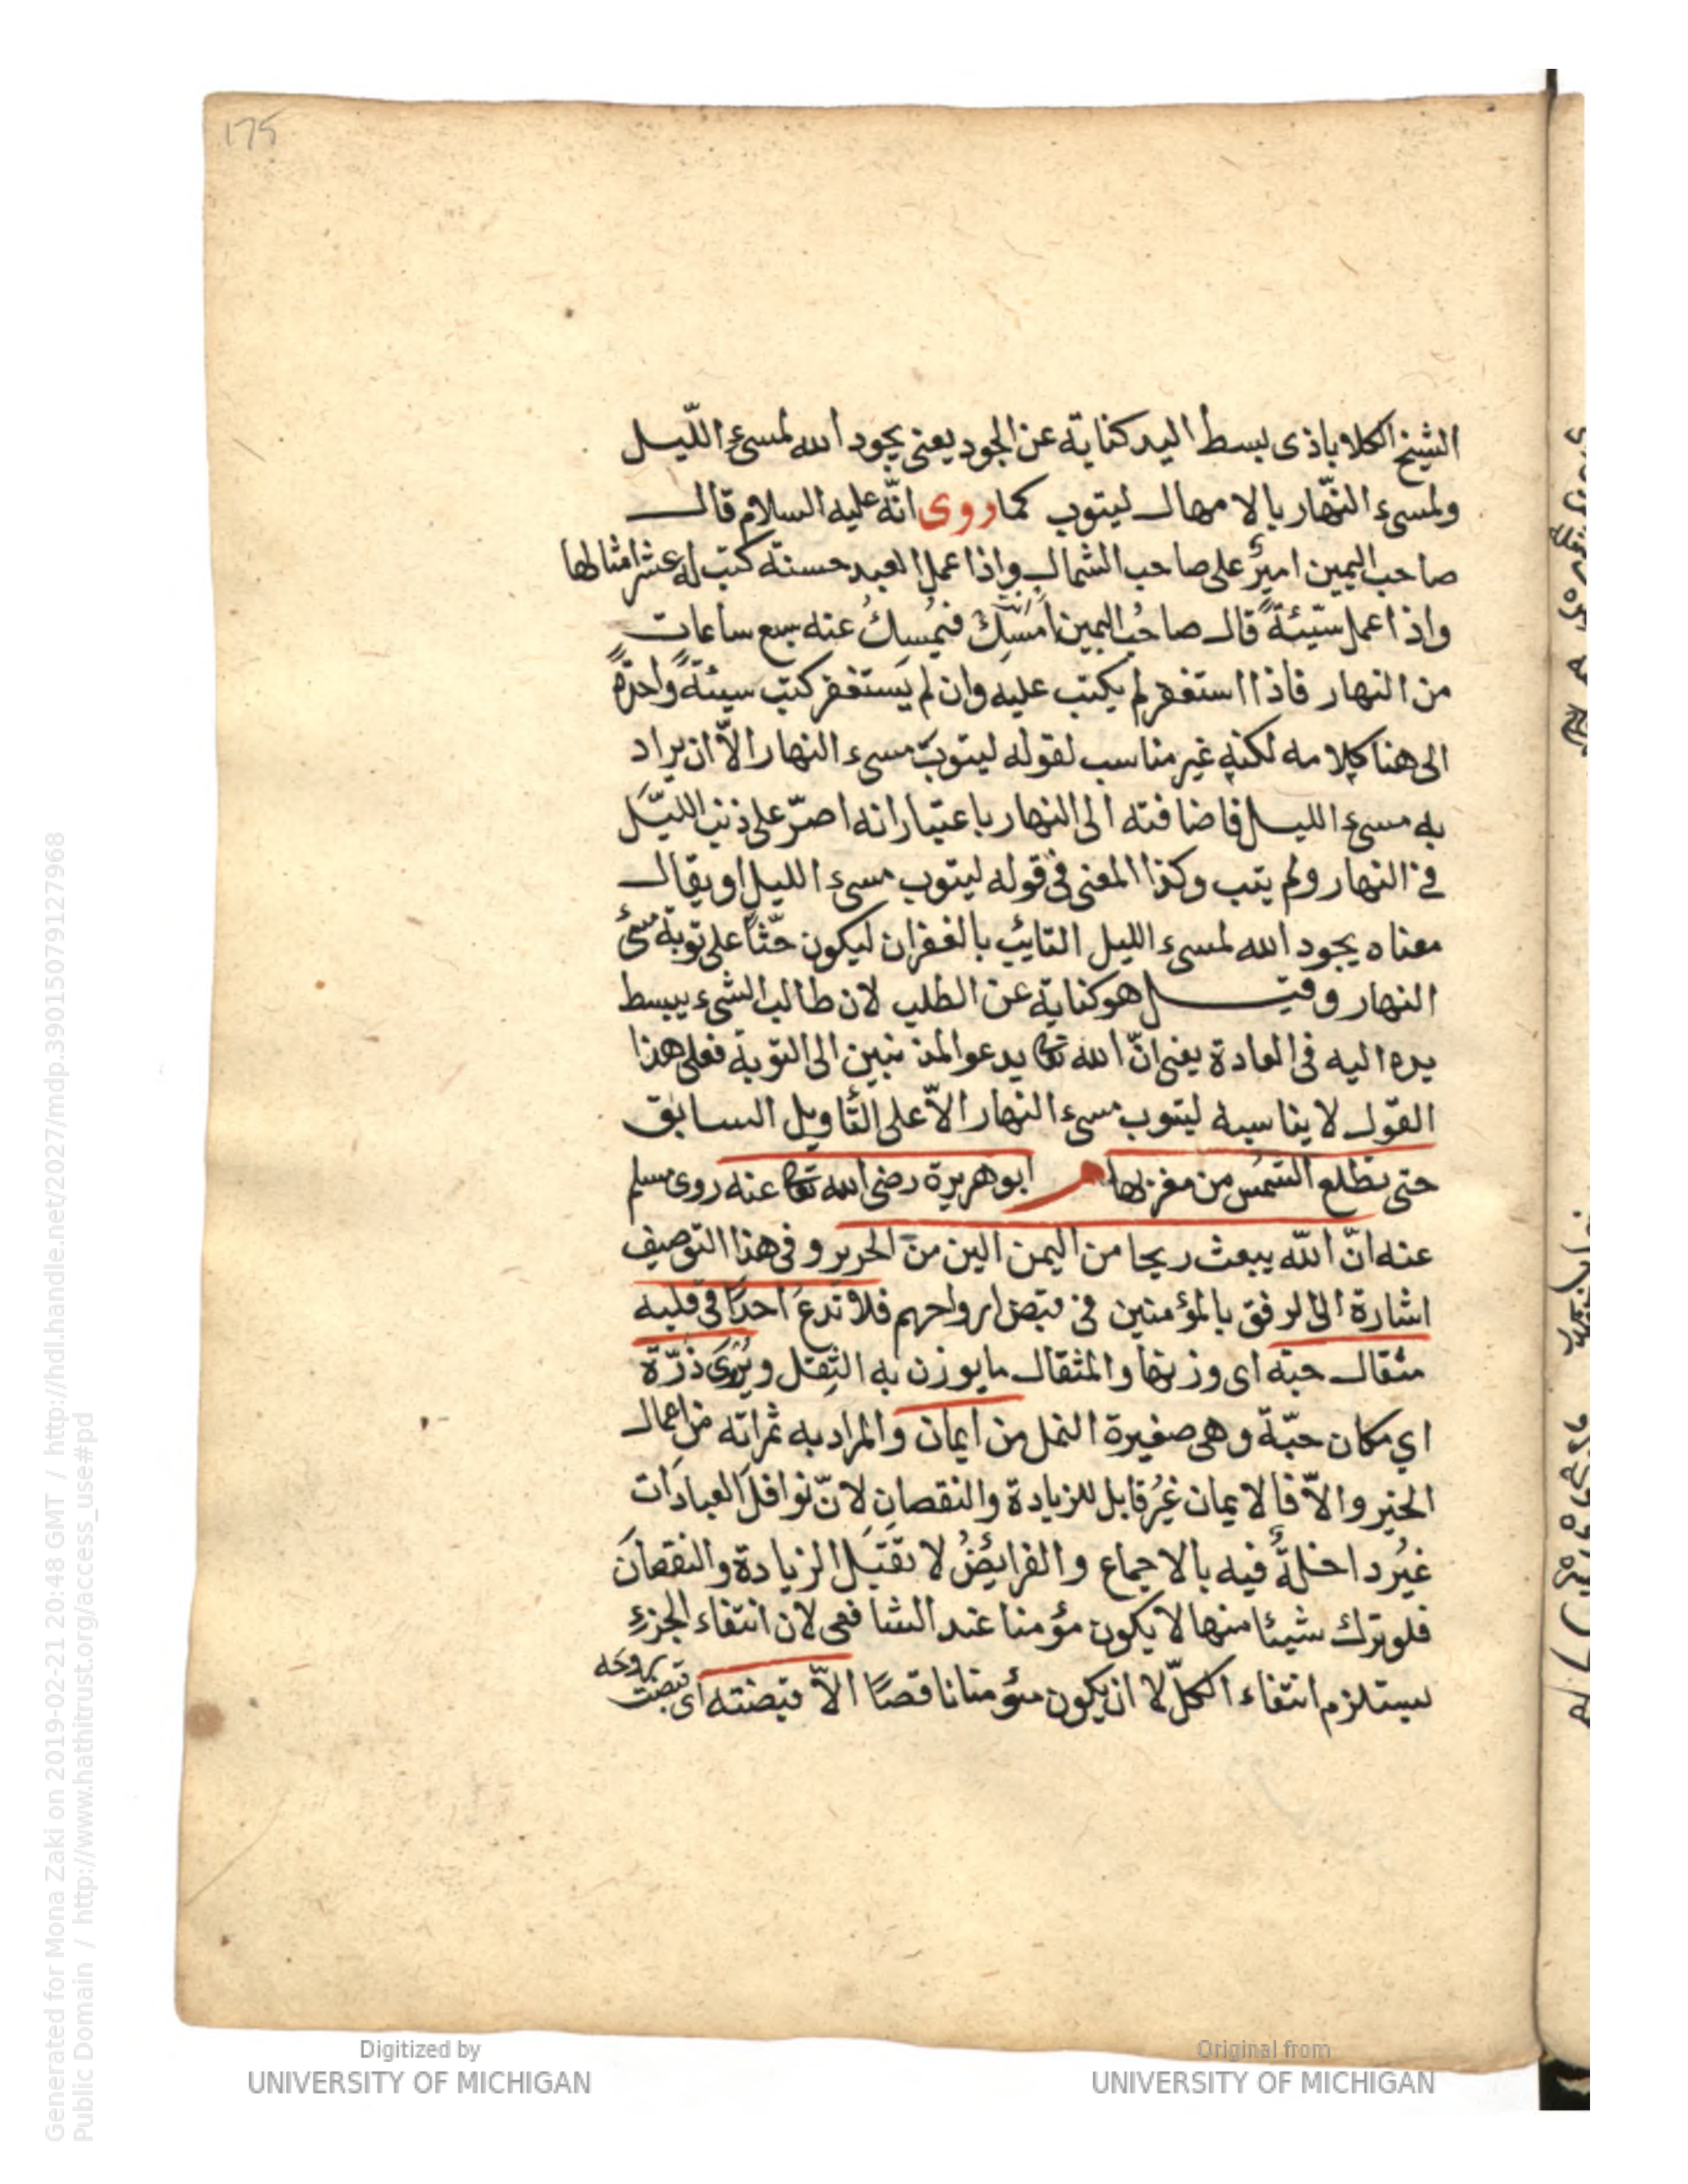 175
الشيخ الكلاباذى بسط اليد كناية عن الجود يعنى يجود الله لمسىء اللّيل
ولمسىء النّهار بالامهال ليتوب كما روى انّه عليه السلام قال
صاحب اليمين اميرٌ على صاحب الشمال واذا عمل العبد حسنة كتب له عشر امثالها
واذا عمل سيّئةً قال صاحبُ اليمين اَمْسِكْ فيُمسِكُ عنه سبع ساعات
من النهار فاذا استغفر لم يكتب عليه وان لم يَستغفر كتب سيئةً واحدةً
الى هنا كلامه لكنه غير مناسب لقوله ليتوبَ مسىء النهار الاّ ان يراد
به مسىء الليل فاضافته الى النهار باعتبار انه اصرّ على ذنب الليّل
فى النهار ولم يتب وكذا المعنى فى قوله ليتوب مسىء الليل او يقال
معناه يجود الله لمسىء الليل التائب بالغفران ليكون حثّاً على توبة مسىء
النهار وقيل هو كناية عن الطلب لان طالب الشىء يبسط
يده اليه فى العادة يعنى انّ الله تعا يدعو المذنبين الى التوبة فعلى هذا
القول لا يناسبه ليتوب مسىء النهار الاّ على التّأويل السابق
حتى تطلع الشمسُ من مغربها م ابو هريرة رضى الله تعا عنه روى مسلم
عنه انّ الله يبعث ريحا من اليمن الين من الحرير وفى هذا التوصيف
اشارة الى الرفق بالمؤمنين فى قبض ارواحهم فلا تدعُ احدًا فى قلبه
مثقال حبة اى وزنها والمثقال ما يوزن به الثِقل ويُرْوَى ذَرّة
اي مكان حبّة وهى صغيرة النمل من ايمان والمراد به ثمراته من اعمال
الخير والاّ فالايمان غيرُ قابل للزيادة والنقصان لانّ نوافلَ العبادَات
غيُر داخلةٌ فيه بالاجماع والفرائضُ لا تقبَل الزيادة والنقصانَ
فلو ترك شيئا منها لا يكون مؤمنا عند الشافعى لان انتفاء الجزءِ
يستلزم انتفاء الكلّ لا ان يكون مؤمنا ناقصًا الاّ قبضته اى قبضت روحه
Generated for Mona Zaki on 2019-02-21 20:48 GMT / http://hdl.handle.net/2027/mdp.39015079127968
Public Domain / http://www.hathitrust.org/access_use#pd
Digitized by
UNIVERSITY OF MICHIGAN
Original from
UNIVERSITY OF MICHIGAN